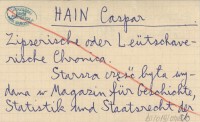 HAIN Caspar
Zipserische oder Leütschave-
rische Chronica.
Starsza część była wy-
dana w Magazin für Geschichte,
Statistik und Staatsrecht der